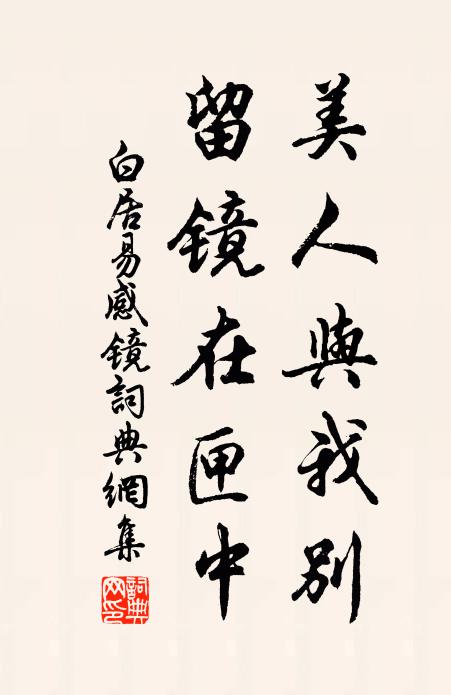 美人與我別
留镜在匣中
白居易感镜詞典網集
詞典網印